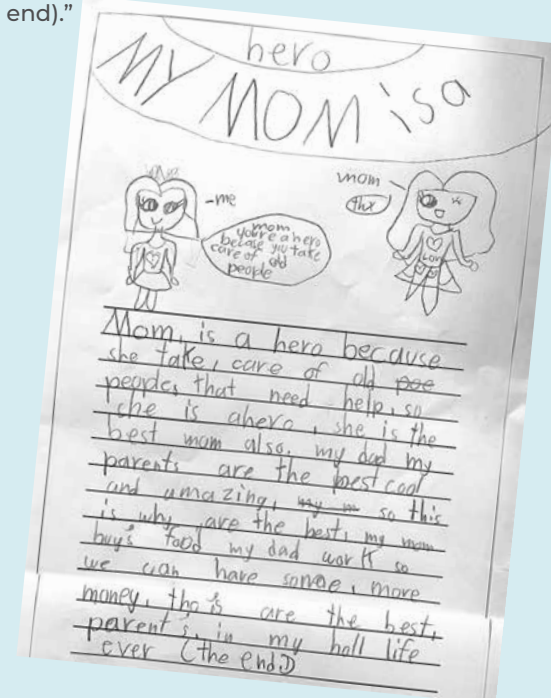 end).”
hero
MY MOM is a
-me
mom
thx
mom
you're a hero
becuse you take
care of old
people
Love
Mom, is a hero because
she take, care of old poe
people, that need help, so
she is ahero, she is the
best mom also, my dad my
parents are the best cool
and amazing, my m so this
is why are the best, my mom
buy's food my dad work so
we can have some, more
money, tho's are the best,
parent's, in my holl life
ever (the end)